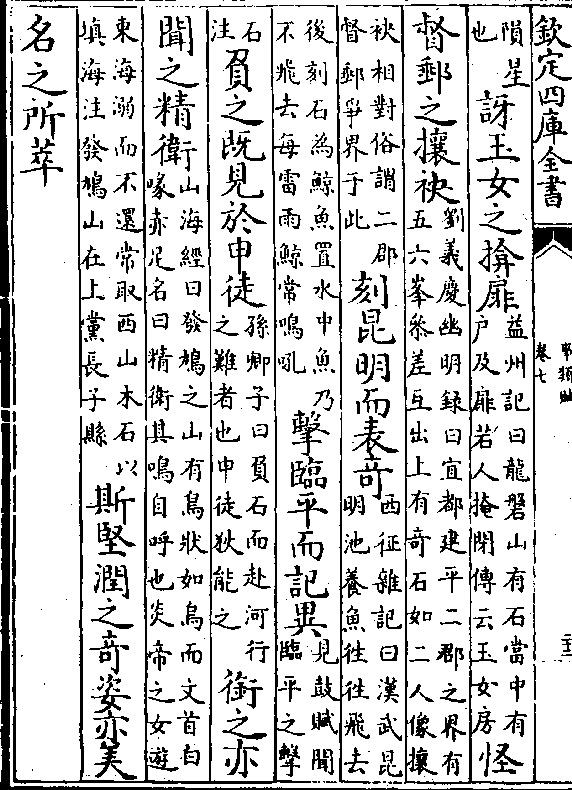 欽定四庫全書
事類賦
卷七
隕星
也
訝玉女之揜扉
益州記曰龍磐山有石當中有
户及扉若人掩閉傳云玉女房
怪
督郵之攘袂
劉義慶幽明録曰宜都建平二郡之界有
五六峯參差互出上有奇石如二人像攘
袂相對俗謂二郡
督郵爭界于此
刻昆明而表奇
西征雜記曰漢武昆
明池養魚往往飛去
後刻石為鯨魚置水中魚乃
不飛去每雷雨鯨常鳴吼
擊臨平而記異
見鼓賦聞
臨平之擊
石
注
負之既見於申徒
孫卿子曰負石而赴河行
之難者也申徒狄能之
銜之亦
聞之精衛
山海經曰發鳩之山有鳥狀如烏而文首白
喙赤足名曰精衛其鳴自呼也炎帝之女遊
東海溺而不還常取西山木石以
填海注發鳩山在上黨長子縣
斯堅潤之奇姿亦美
名之所萃